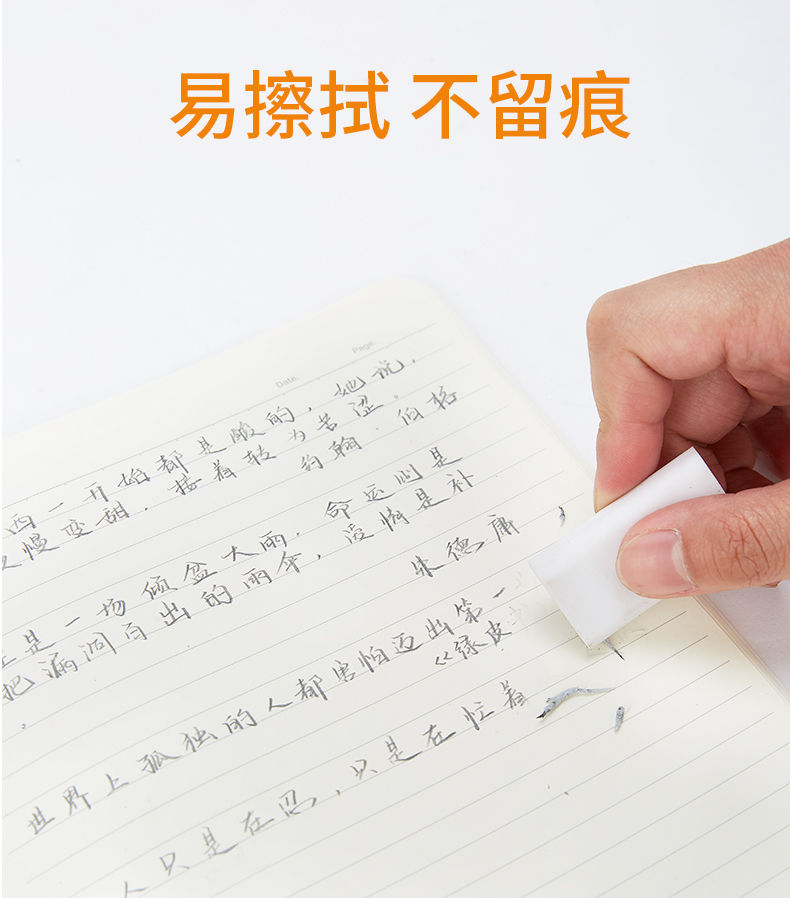 易擦拭 不留痕
Date.
Page.
西一开始都是酸的，她说，
慢变甜，接着转为苦涩。
约翰·伯格
是一场倾盆大雨，命运则是
把漏洞百出的雨伞，爱情是补
朱德庸
世界上孤独的人都害怕迈出第一
《绿皮
人只是在忍，只是在忙着